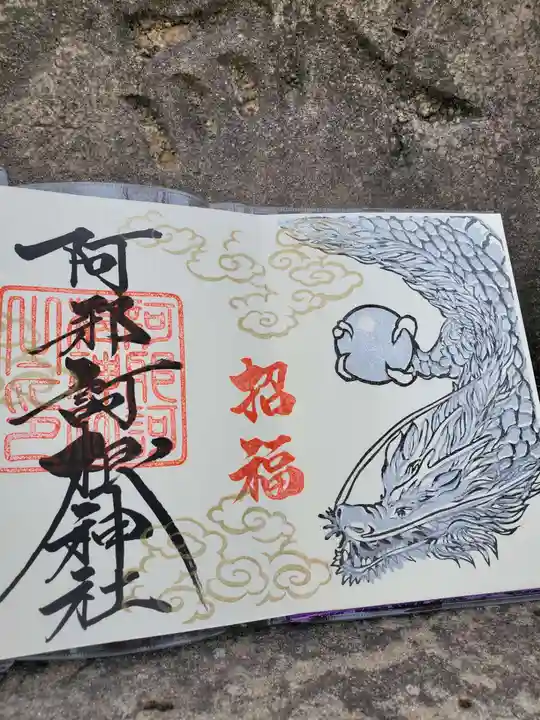 招福
阿邪訶根神社